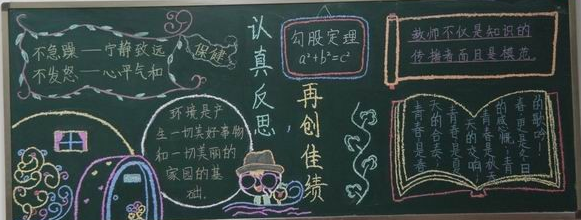 不急躁——宁静致远
不发怒——心平气和
保健
认真反思,
再创佳绩
勾股定理
a²+b²=c²
教师不仅是知识的
传播者而且是模范.
环境是产
生一切美好事物
和一切美丽的
家园的基
础.
的歌吟!
春更是冬日
的感慨,青
青春是秋天
天的交响
青春是夏
天的合奏,
青春是春